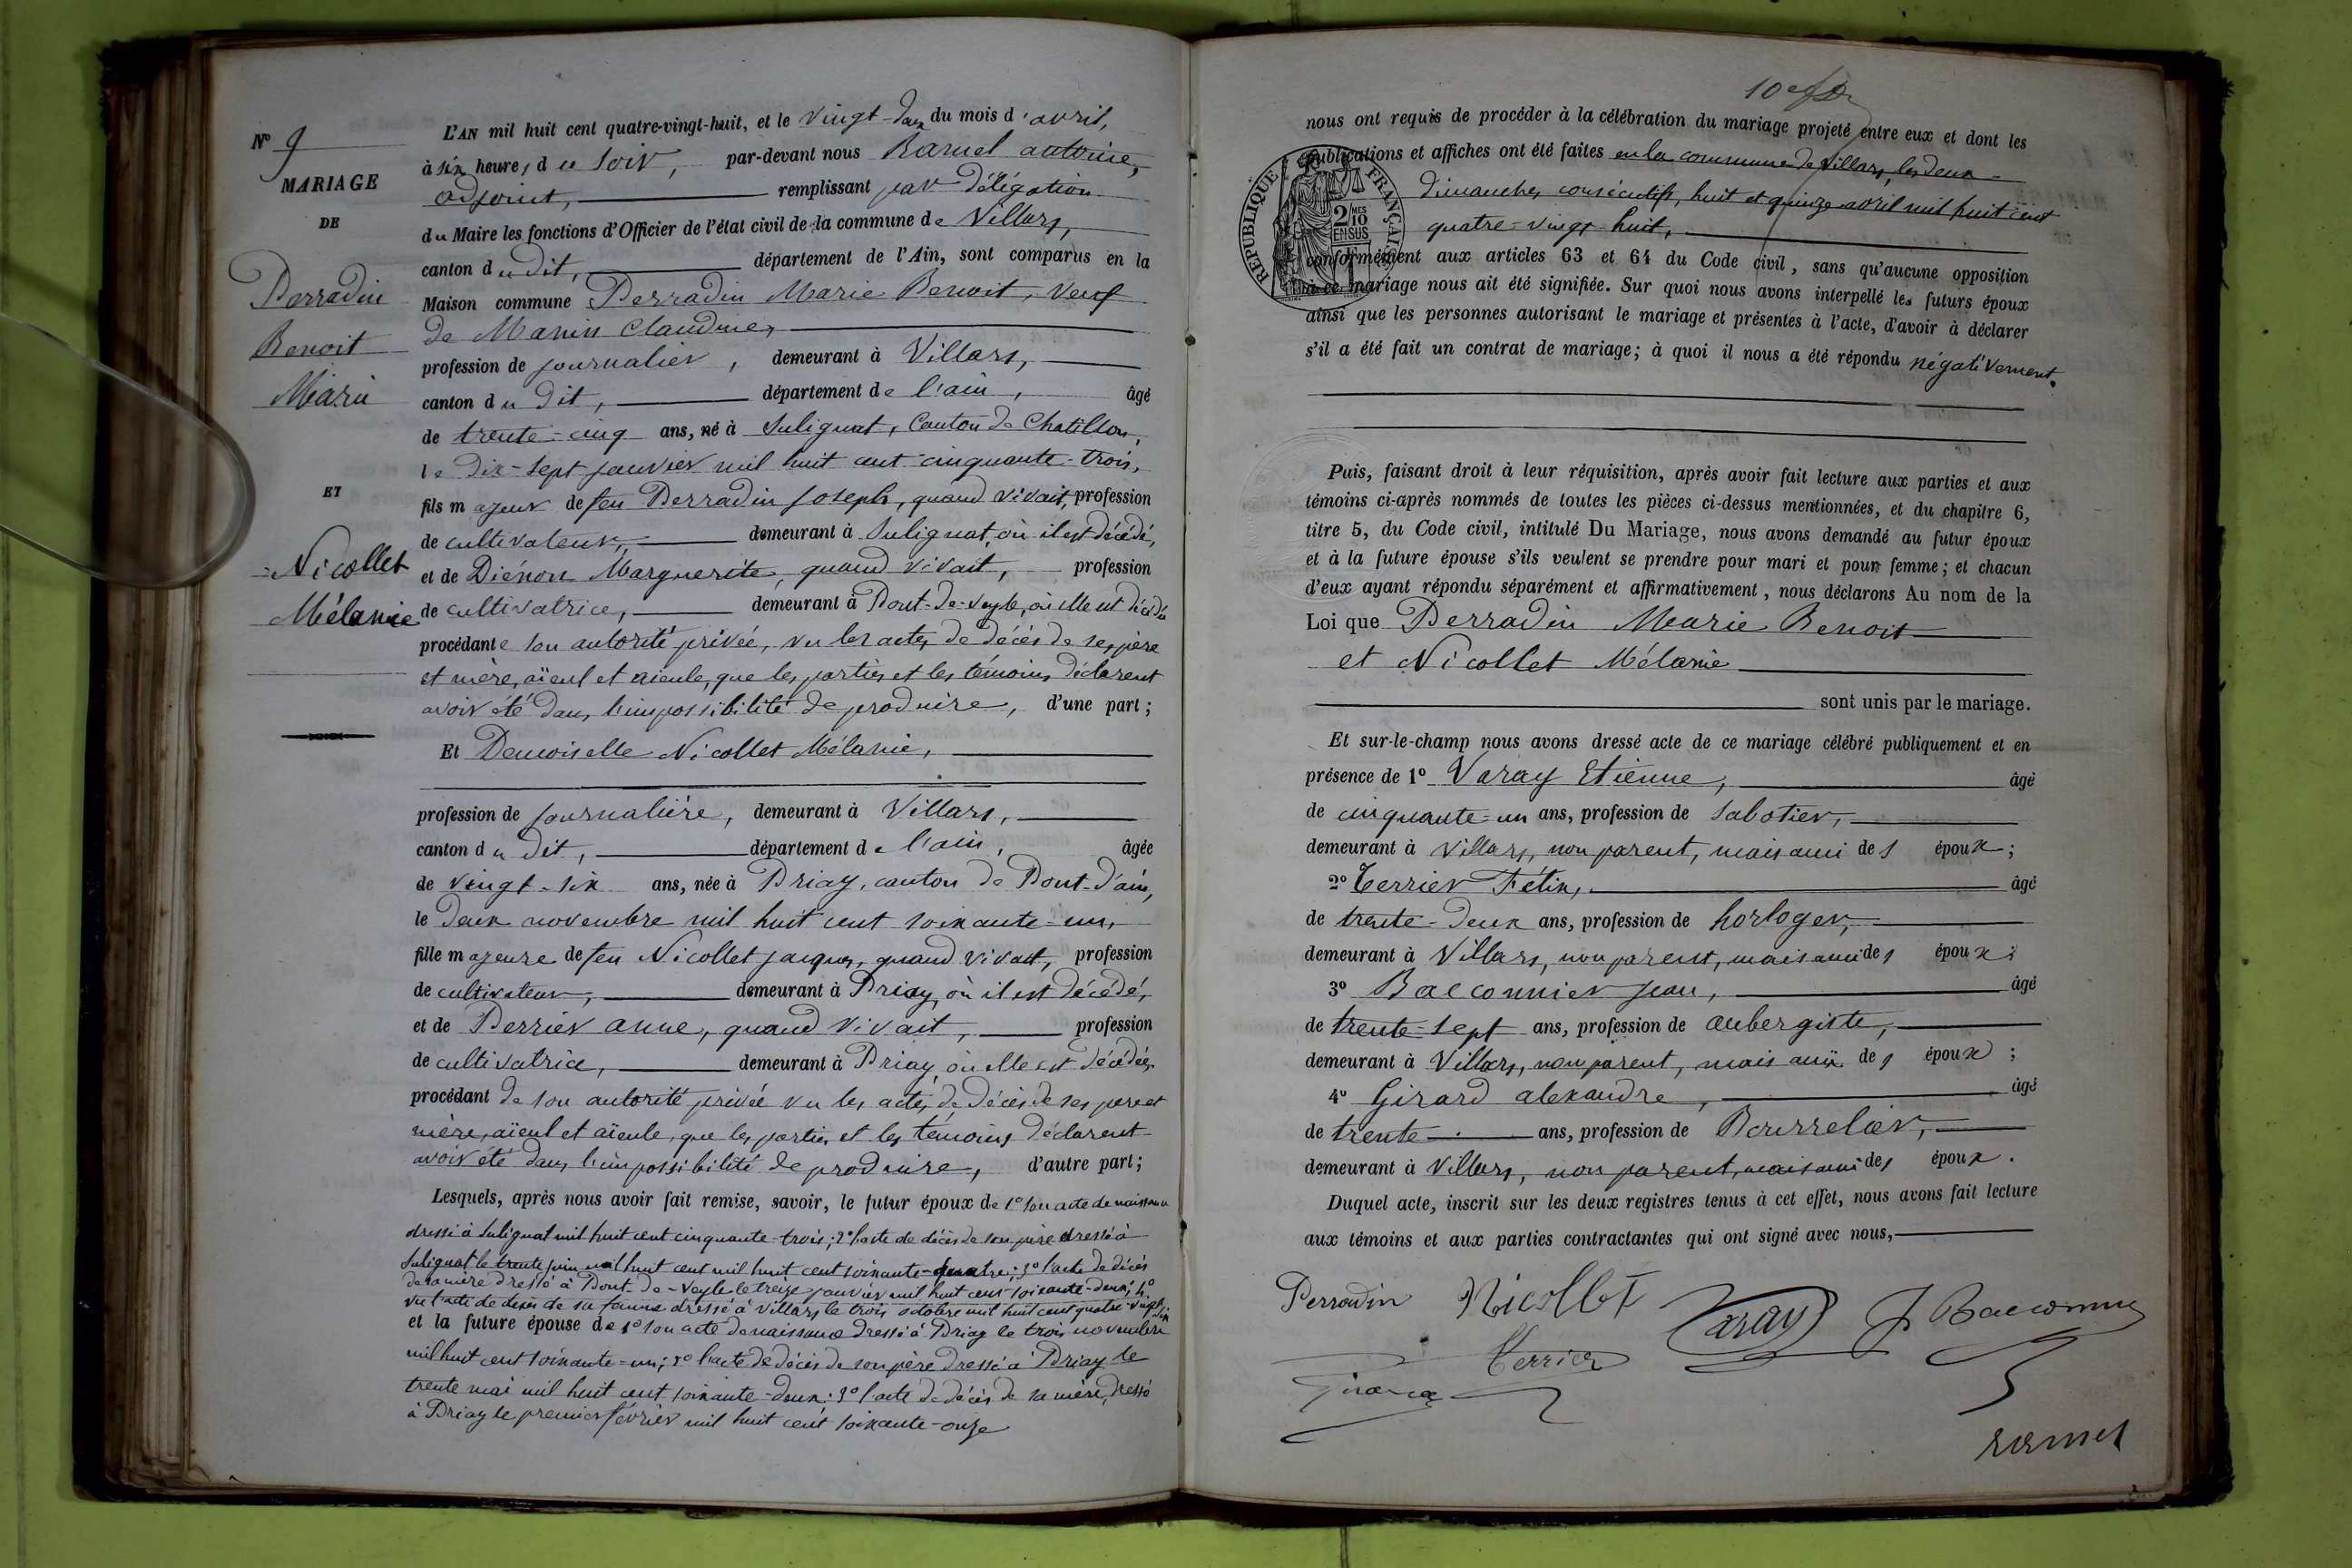 N° 9
MARIAGE
DE
Perradin
Benoit
Marie
ET
Nicollet
Mélanie
L'AN mil huit cent quatre-vingt-huit, et le vingt-deux du mois d'avril,
à six heures du soir, par-devant nous Ramel antoine,
adjoint, remplissant par délégation
du Maire les fonctions d'Officier de l'état civil de la commune de Villars,
canton du dit, département de l'Ain, sont comparus en la
Maison commune Perradin Marie Benoit, veuf
de Manin Claudine,
profession de journalier, demeurant à Villars,
canton du dit, département de l'ain, âgé
de trente-cinq ans, né à Sulignat, Canton de Chatillon,
le dix-sept janvier mil huit cent cinquante-trois,
fils majeur de feu Perradin Joseph, quand vivait, profession
de cultivateur, demeurant à Sulignat, où il est décédé,
et de Diénon Marguerite, quand vivait, profession
de cultivatrice, demeurant à Pont-de-Veyle, où elle est décédée
procédant e son autorité privée, vu les actes de décès de ses père
et mère, aïeul et aïeule, que les parties et les témoins déclarent
avoir été dans l'impossibilité de produire, d'une part;
Et Demoiselle Nicollet Mélanie,
profession de journalière, demeurant à Villars,
canton du dit, département de l'ain, âgée
de vingt-six ans, née à Priay, canton de Pont-d'ain,
le deux novembre mil huit cent soixante-un,
fille majeure de feu Nicollet jacques, quand vivait, profession
de cultivateur, demeurant à Priay, où il est décédé,
et de Perrier anne, quand vivait, profession
de cultivatrice, demeurant à Priay, où elle est décédée,
procédant de son autorité privée vu les actes de décès de ses père et
mère, aïeul et aïeule, que les parties et les témoins déclarent
avoir été dans l'impossibilité de produire, d'autre part;
Lesquels, après nous avoir fait remise, savoir, le futur époux de 1° son acte de naissance
dressé à Sulignat mil huit cent cinquante-trois; 2° l'acte de décès de son père dressé à
Sulignat le trente juin mil huit cent mil huit cent soixante-quatre; 3° l'acte de décès
de sa mère dressé à Pont-de-Veyle le treize janvier mil huit cent soixante-deux; 4°
vu l'acte de décès de sa femme dressé à Villars le trois octobre mil huit cent quatre-vingt-six
et la future épouse de 1° son acte de naissance dressé à Priay le trois novembre
mil huit cent soixante-un; 2° l'acte de décès de son père dressé à Priay le
trente mai mil huit cent soixante-deux; 3° l'acte de décès de sa mère, dressé
à Priay le premier février mil huit cent soixante-onze
10e
nous ont requis de procéder à la célébration du mariage projeté entre eux et dont les
publications et affiches ont été faites en la commune de Villars, les deux
dimanches consécutifs, huit et quinze avril mil huit cent
quatre-vingt-huit,
RÉPUBLIQUE FRANÇAISE
2 MES
10
EN SUS
conformément aux articles 63 et 64 du Code civil, sans qu'aucune opposition
à ce mariage nous ait été signifiée. Sur quoi nous avons interpellé les futurs époux
ainsi que les personnes autorisant le mariage et présentes à l'acte, d'avoir à déclarer
s'il a été fait un contrat de mariage; à quoi il nous a été répondu négativement.
Puis, faisant droit à leur réquisition, après avoir fait lecture aux parties et aux
témoins ci-après nommés de toutes les pièces ci-dessus mentionnées, et du chapitre 6,
titre 5, du Code civil, intitulé Du Mariage, nous avons demandé au futur époux
et à la future épouse s'ils veulent se prendre pour mari et pour femme; et chacun
d'eux ayant répondu séparément et affirmativement, nous déclarons Au nom de la
Loi que Perradin Marie Benoit
et Nicollet Mélanie
sont unis par le mariage.
Et sur-le-champ nous avons dressé acte de ce mariage célébré publiquement et en
présence de 1° Varay Etienne, âgé
de cinquante-un ans, profession de sabotier,
demeurant à Villars, non parent, mais ami des époux;
2° Terrier Félix, âgé
de trente-deux ans, profession de horloger,
demeurant à Villars, non parent, mais ami des époux;
3° Bacconnier jean, âgé
de trente-sept ans, profession de aubergiste,
demeurant à Villars, non parent, mais ami des époux;
4° Girard alexandre, âgé
de trente ans, profession de Bourrelier,
demeurant à Villars, non parent, mais ami des époux.
Duquel acte, inscrit sur les deux registres tenus à cet effet, nous avons fait lecture
aux témoins et aux parties contractantes qui ont signé avec nous,
Perradin Nicollet Varay J Bacconnier
Terrier
Girard
ramel